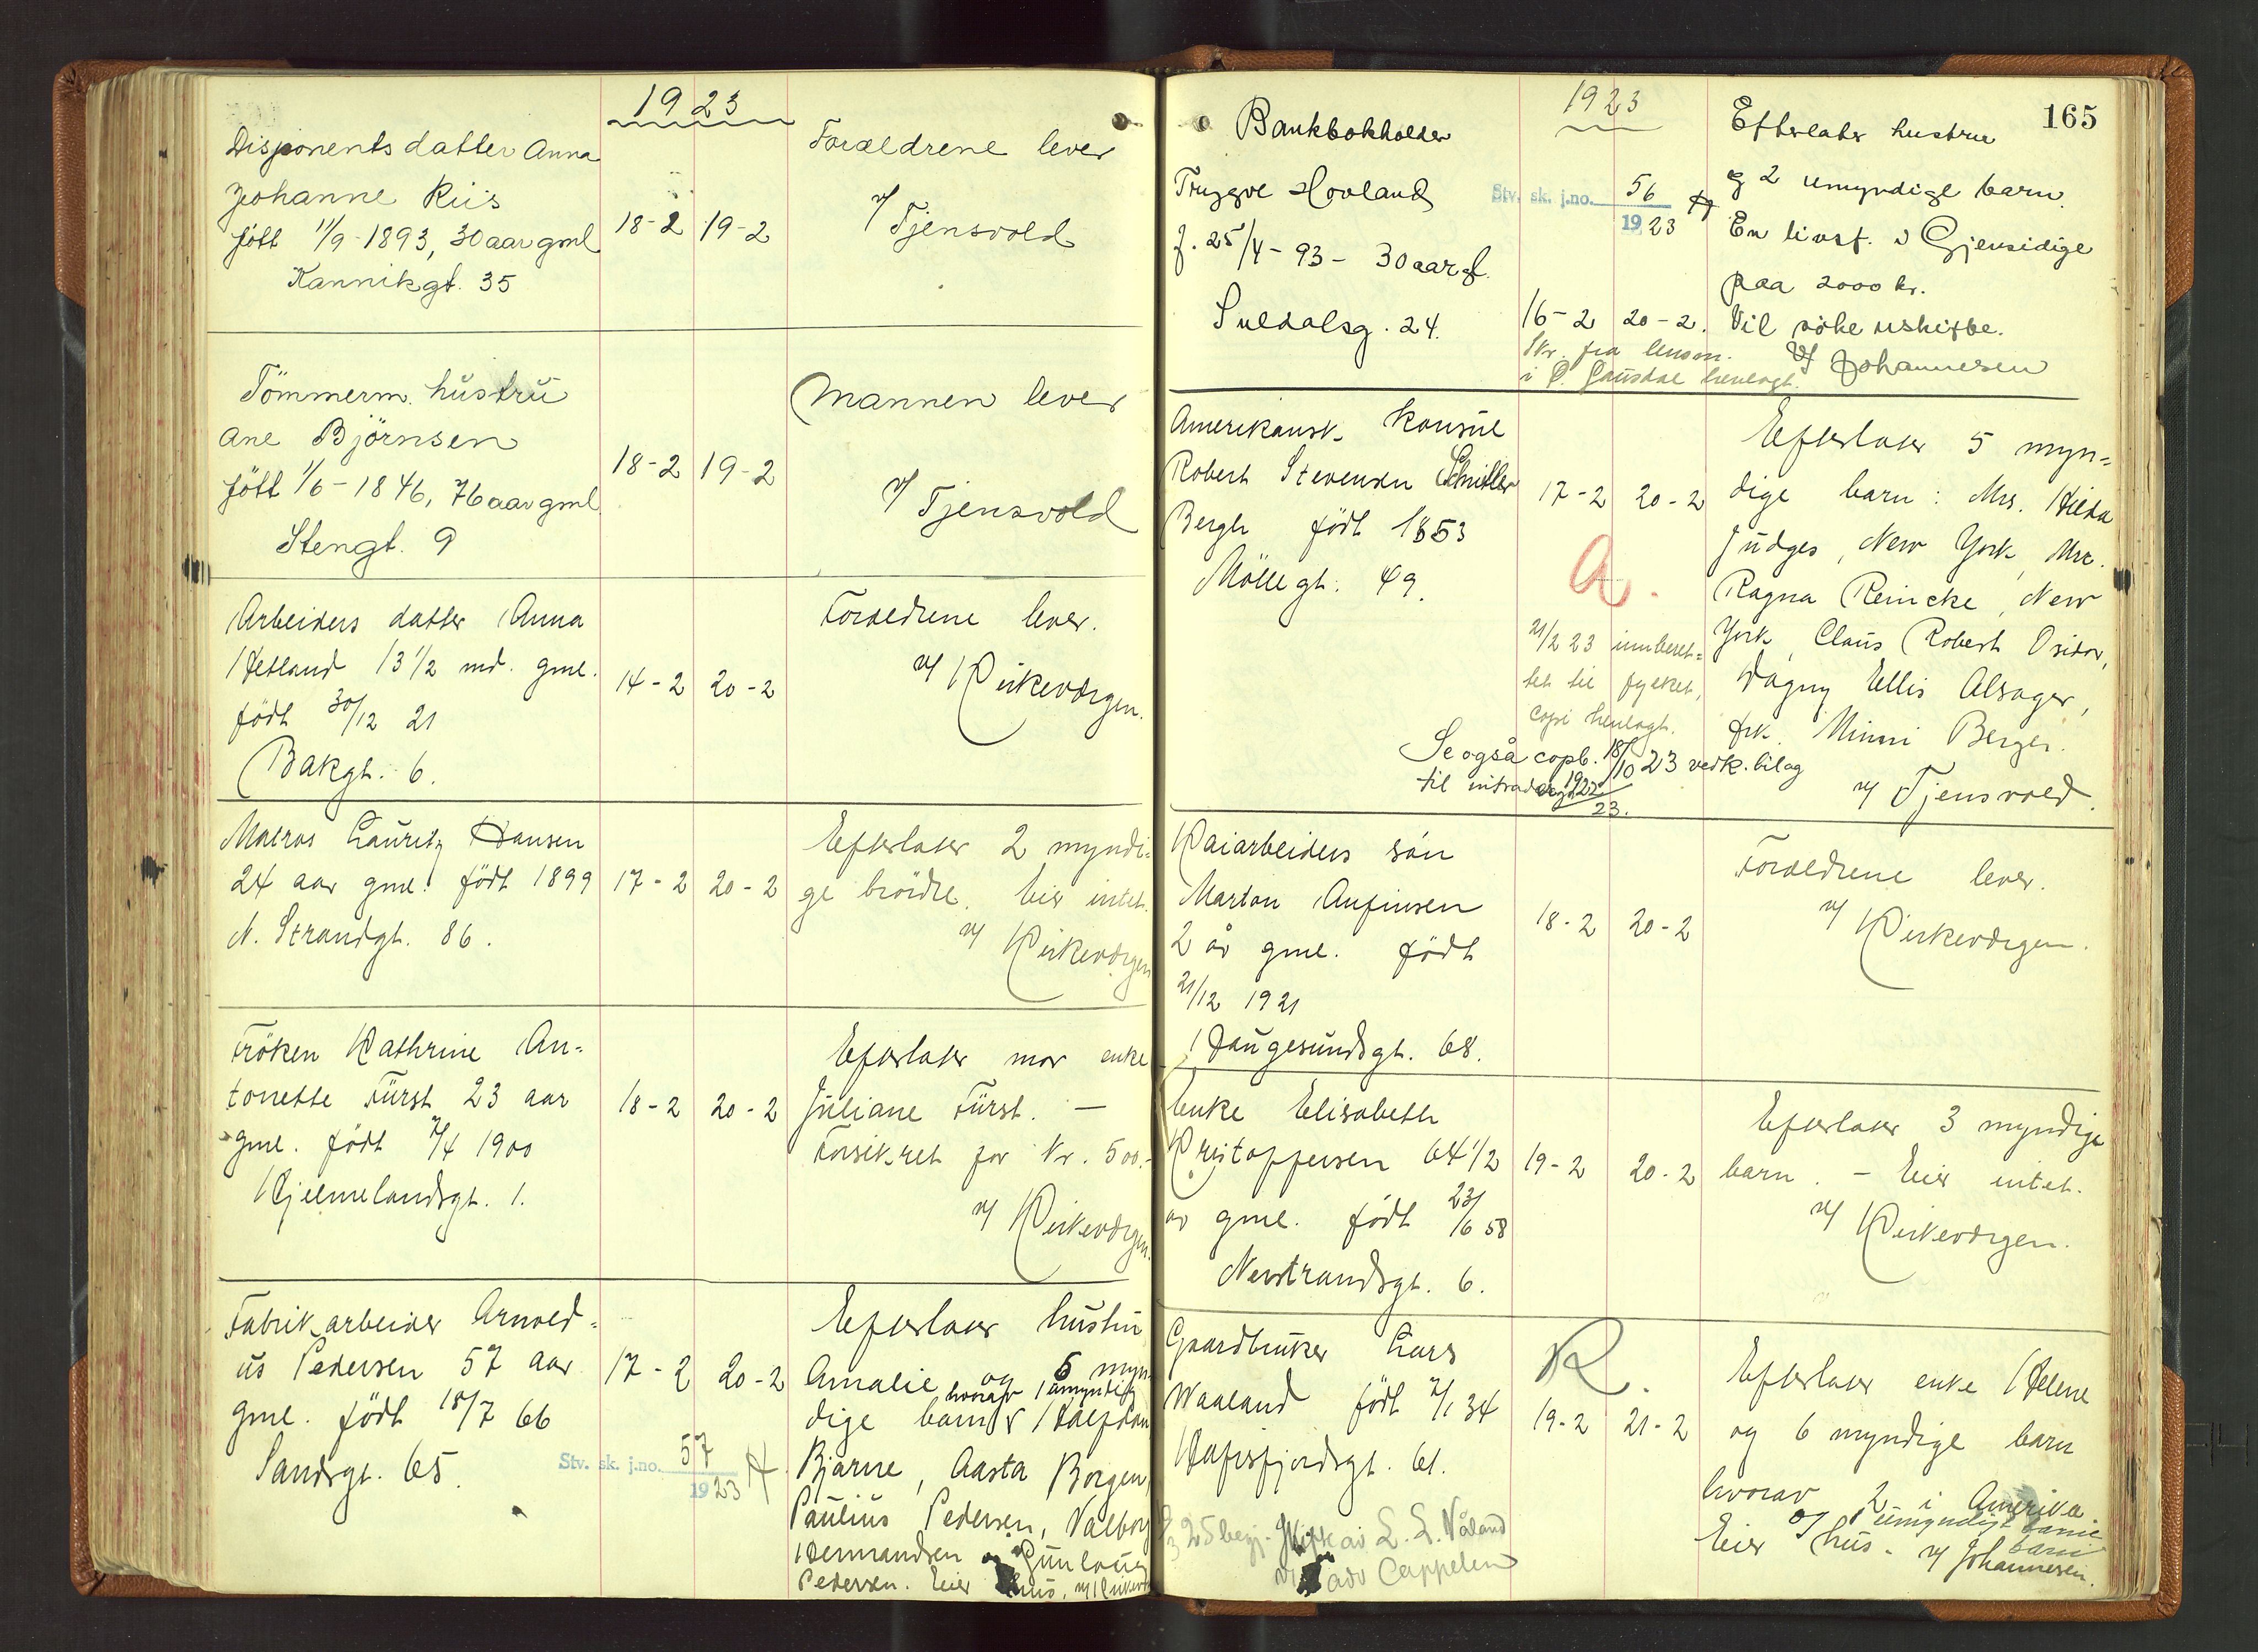 1923
Disponents datter Anna
Johanne Riis
född 11/9-1893, 30 aar gml
Kannikgt. 35
18-2 19-2
Forældrene lever
v/ Tjensvold
Tömmerm. hustru
Ane Björnsen
född 1/6-1846, 76 aar gml.
Stengt. 9
18-2 19-2
Mannen lever
v/ Tjensvold
Arbeiders datter Anna
Hetland 13 1/2 md. gml.
född 30/12 21
Bakgt. 6.
14-2 20-2
Forældrene lever.
v/ Kirkevergen.
Matros Lauritz Hansen
24 aar gml. född 1899
N. Strandgt. 86.
17-2 20-2
Efterlater 2 myndi-
ge brödre. Eier intet.
v/ Kirkevergen
Fröken Kathrine An-
tonette Fürst 23 aar
gml. född 7/4 1900
Hjelmelandsgt. 1.
18-2 20-2
Efterlater mor enke
Juliane Fürst. —
Forsikret for Kr. 500.-
v/ Kirkevergen.
Fabrikarbeider Arnold-
us Pedersen 57 aar
gml. född 18/7 66
Sandsgt. 65.
17-2 20-2
Stv. sk. j.no. 57
1923
Efterlater hustru
Amalie og 6 myn-
hvorav 1 umyndig
dige barn: Halfdan
Bjarne, Aasta Borgen,
Paulius Pedersen, Valborg
Hermandsen og Gunlaug
Pedersen. Eier hus. v/ Kirkev
165
1923
Bankbokholder
Tryggve Hovland
f. 25/4-93- 30 aar gl.
Suldalsg. 24.
Stv. sk. j.no. 56
1923
16-2 20-2.
Skr. fra lensm.
i Ö. Gausdal henlagt.
Efterlater hustru
og 2 umyndige barn.
En livsf. i Gjensidige
paa 2000 kr.
Vil söke uskifte.
v/ Johannesen
Amerikansk Konsul
Robert Stevensen Schiller
Bergh född 1853
Möllegt. 49.
17-2 20-2
A.
21/2 23 innberet-
tet til fylket,
Copi henlagt.
Se også copb. 18/10 23 vedk. bilag
til 1922/
23.
Efterlater 5 myn-
dige barn: Mrs. Hilda
Judges, New York, Mrs.
Ragna Reincke, New
York, Claus Robert Osidor,
Dagny Ellis Alsager,
frk. Minni Berger.
v/ Tjensvold.
Kaiarbeiders sön
Marton Anfinsen
2 år gml. född
21/12 1921
Haugesundsgt. 68.
18-2 20-2
Forældrene lever.
v/ Kirkevergen.
Enke Elisabeth
Kristoffersen 64 1/2
år gml. född 23/6 58
Nerstrandsgt. 6.
19-2 20-2
Efterlater 3 myndige
barn. - Eier intet.
v/ Kirkevergen.
Gaardbruker Lars
Waaland född 7/1 34
Hafrsfjordsgt. 61.
R.
19-2 21-2
Efterlater enke Helene
og 6 myndige barn
hvorav 2 i Amerika
og 1 umyndigt barne
barn
Eier hus. v/ Johannesen.
25 begj. skifte av L. L. Våland
v/ adv Cappelen